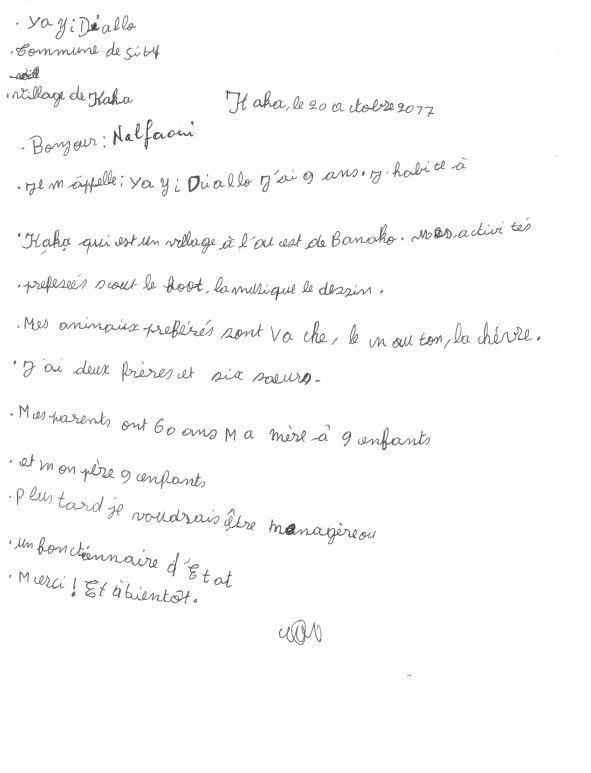 . Ya Yi Diallo
. Commune de Siby
. Village de Kaka
Kaka, le 20 octobre 2017
. Bonjour : Nalfaoui
. Je m'appelle : Ya Yi Diallo J'ai 9 ans. J. habite à
. Kaka qui est un village à l'ouest de Bamako. Mes activités
. preferées sout le foot, la musique le dessin.
. Mes animaux préférés sont Va che, le mouton, la chévre.
. J'ai deux frères et six soeurs.
. Mes parents ont 60 ans Ma mère à 9 enfants
. et mon père 9 enfants
. Plus tard je voudrais être managère ou
. un fonctionnaire d'Etat
. Merci ! Et à bientôt.